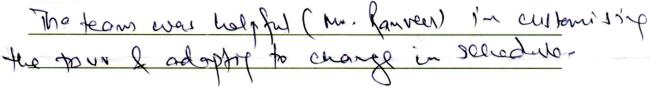 The team was helpful (Mr. Ranveer) in customising
the tour & adapting to change in schedule.